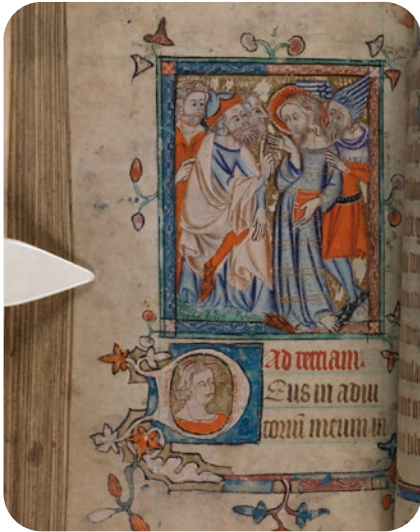 Ad terciam.
Eus in adiu
toriū meum in